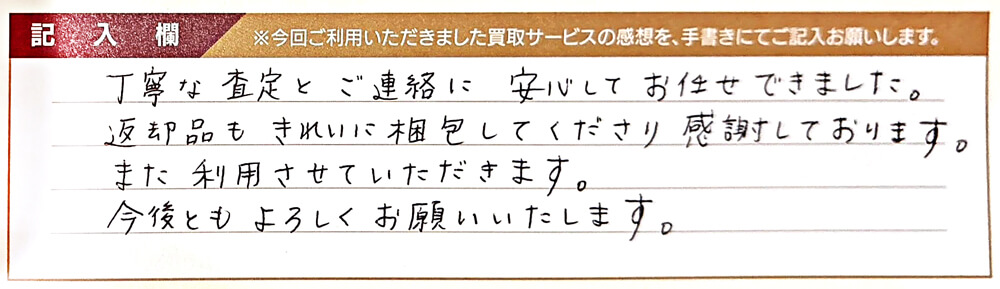 記入欄
※今回ご利用いただきました買取サービスの感想を、手書きにてご記入お願いします。
丁寧な査定とご連絡に 安心してお任せできました。
返却品もきれいに梱包してくださり感謝しております。
また利用させていただきます。
今後ともよろしくお願いいたします。